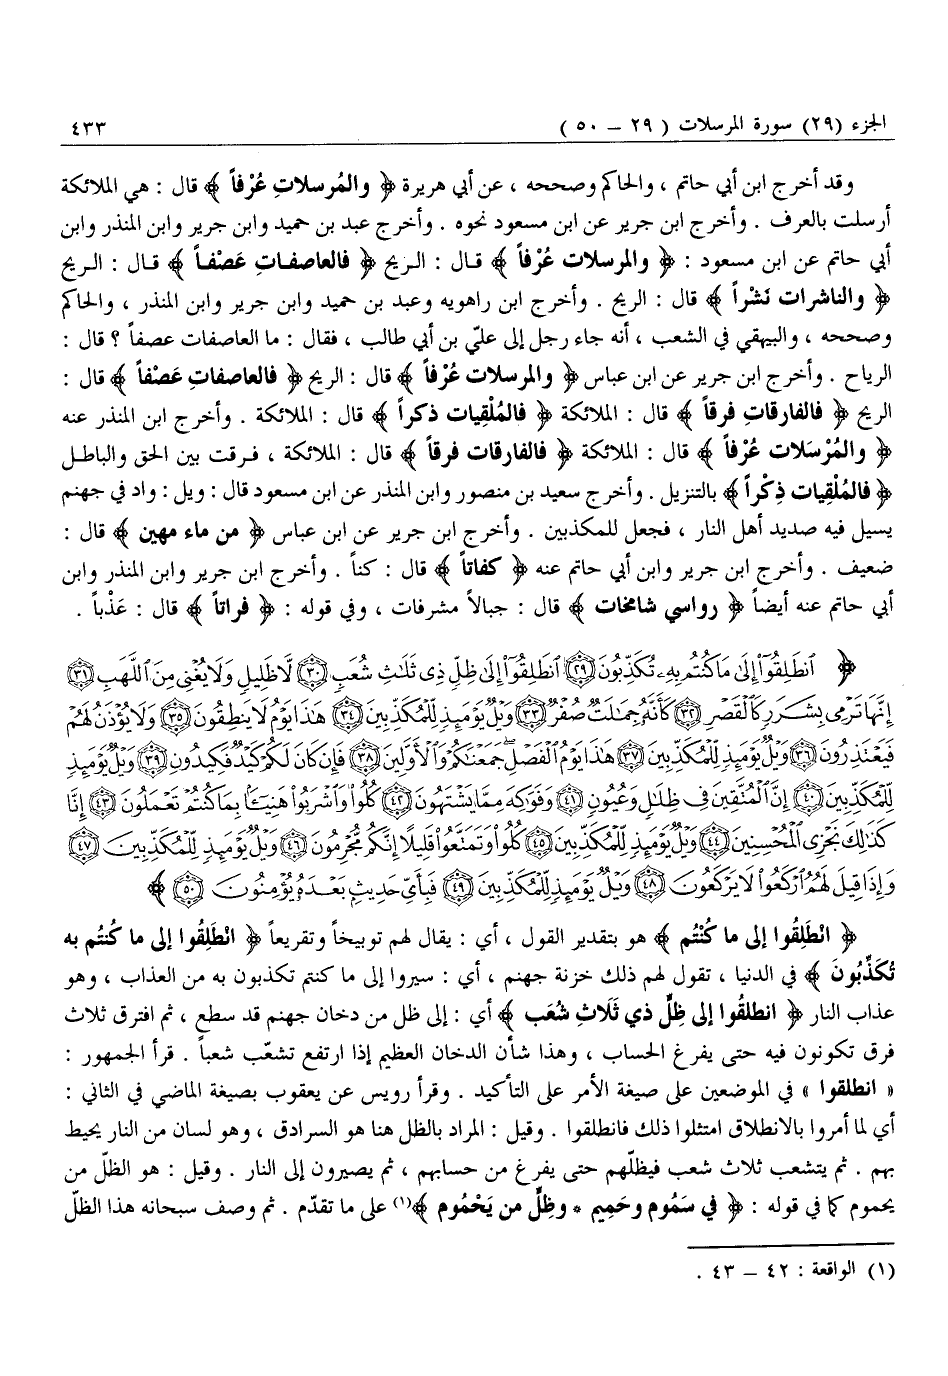 الجزء (٢٩) سورة المرسلات ( ٢٩ – ٥٠ ) ٤٣٣
وقد أخرج ابن أبي حاتم ، والحاكم وصححه ، عن أبي هريرة ﴿ والمُرسلاتِ عُرْفاً ﴾ قال : هي الملائكة
أرسلت بالعرف . وأخرج ابن جرير عن ابن مسعود نحوه . وأخرج عبد بن حميد وابن جرير وابن المنذر وابن
أبي حاتم عن ابن مسعود : ﴿ والمرسلات عُرْفاً ﴾ قال : الريح ﴿ فالعاصفاتِ عَصْفاً ﴾ قال : الريح
﴿ والناشرات نَشْراً ﴾ قال : الريح . وأخرج ابن راهويه وعبد بن حميد وابن جرير وابن المنذر ، والحاكم
وصححه ، والبيهقي في الشعب ، أنه جاء رجل إلى عليّ بن أبي طالب ، فقال : ما العاصفات عصفاً ؟ قال :
الرياح . وأخرج ابن جرير عن ابن عباس ﴿ والمرسلات عُرْفاً ﴾ قال : الريح ﴿ فالعاصفاتِ عَصْفاً ﴾ قال :
الريح ﴿ فالفارقاتِ فرقاً ﴾ قال : الملائكة ﴿ فالمُلْقيات ذكراً ﴾ قال : الملائكة . وأخرج ابن المنذر عنه
﴿ والمُرْسَلات عُرْفاً ﴾ قال : الملائكة ﴿ فالفارقات فرقاً ﴾ قال : الملائكة ، فرقت بين الحق والباطل
﴿ فالمُلْقِيات ذِكْراً ﴾ بالتنزيل . وأخرج سعيد بن منصور وابن المنذر عن ابن مسعود قال : ويل : واد في جهنم
يسيل فيه صديد أهل النار ، فجعل للمكذبين . وأخرج ابن جرير عن ابن عباس ﴿ من ماء مهين ﴾ قال :
ضعيف . وأخرج ابن جرير وابن أبي حاتم عنه ﴿ كفاتاً ﴾ قال : كناً . وأخرج ابن جرير وابن المنذر وابن
أبي حاتم عنه أيضاً ﴿ رواسي شامخات ﴾ قال : جبالاً مشرفات ، وفي قوله : ﴿ فراتاً ﴾ قال : عَذْباً .
﴿ ٱنطَلِقُوٓاْ إِلَىٰ مَا كُنتُم بِهِۦ تُكَذِّبُونَ ٢٩ ٱنطَلِقُوٓاْ إِلَىٰ ظِلٍّ ذِى ثَلَٰثِ شُعَبٍ ٣٠ لَّا ظَلِيلٍ وَلَا يُغْنِى مِنَ ٱللَّهَبِ ٣١
إِنَّهَا تَرْمِى بِشَرَرٍ كَٱلْقَصْرِ ٣٢ كَأَنَّهُۥ جِمَٰلَتٌ صُفْرٌ ٣٣ وَيْلٌ يَوْمَئِذٍ لِّلْمُكَذِّبِينَ ٣٤ هَٰذَا يَوْمُ لَا يَنطِقُونَ ٣٥ وَلَا يُؤْذَنُ لَهُمْ
فَيَعْتَذِرُونَ ٣٦ وَيْلٌ يَوْمَئِذٍ لِّلْمُكَذِّبِينَ ٣٧ هَٰذَا يَوْمُ ٱلْفَصْلِ جَمَعْنَٰكُمْ وَٱلْأَوَّلِينَ ٣٨ فَإِن كَانَ لَكُمْ كَيْدٌ فَكِيدُونِ ٣٩ وَيْلٌ يَوْمَئِذٍ
لِّلْمُكَذِّبِينَ ٤٠ إِنَّ ٱلْمُتَّقِينَ فِى ظِلَٰلٍ وَعُيُونٍ ٤١ وَفَوَٰكِهَ مِمَّا يَشْتَهُونَ ٤٢ كُلُواْ وَٱشْرَبُواْ هَنِيٓـًٔا بِمَا كُنتُمْ تَعْمَلُونَ ٤٣ إِنَّا
كَذَٰلِكَ نَجْزِى ٱلْمُحْسِنِينَ ٤٤ وَيْلٌ يَوْمَئِذٍ لِّلْمُكَذِّبِينَ ٤٥ كُلُواْ وَتَمَتَّعُواْ قَلِيلًا إِنَّكُم مُّجْرِمُونَ ٤٦ وَيْلٌ يَوْمَئِذٍ لِّلْمُكَذِّبِينَ ٤٧
وَإِذَا قِيلَ لَهُمُ ٱرْكَعُواْ لَا يَرْكَعُونَ ٤٨ وَيْلٌ يَوْمَئِذٍ لِّلْمُكَذِّبِينَ ٤٩ فَبِأَىِّ حَدِيثٍۭ بَعْدَهُۥ يُؤْمِنُونَ ٥٠ ﴾
﴿ انْطَلِقُوا إلى ما كُنْتُم ﴾ هو بتقدير القول ، أي : يقال لهم توبيخاً وتقريعاً ﴿ انْطَلِقُوا إلى ما كُنتُم به
تُكَذِّبُونَ ﴾ في الدنيا ، تقول لهم ذلك خزنة جهنم ، أي : سيروا إلى ما كنتم تكذبون به من العذاب ، وهو
عذاب النار ﴿ انطلقُوا إلى ظِلٍّ ذي ثَلَاثِ شُعَب ﴾ أي : إلى ظل من دخان جهنم قد سطع ، ثم افترق ثلاث
فرق تكونون فيه حتى يفرغ الحساب ، وهذا شأن الدخان العظيم إذا ارتفع تشعّب شعباً . قرأ الجمهور :
« انطلقوا » في الموضعين على صيغة الأمر على التأكيد . وقرأ رويس عن يعقوب بصيغة الماضي في الثاني :
أي لما أمروا بالانطلاق امتثلوا ذلك فانطلقوا . وقيل : المراد بالظل هنا هو السرادق ، وهو لسان من النار يحيط
بهم . ثم يتشعب ثلاث شعب فيظلّهم حتى يفرغ من حسابهم ، ثم يصيرون إلى النار . وقيل : هو الظلّ من
يحموم كما في قوله : ﴿ في سَمُوم وحَمِيم * وظِلٍّ من يَحْمُوم ﴾(١) على ما تقدّم . ثم وصف سبحانه هذا الظلّ
(١) الواقعة : ٤٢ – ٤٣ .